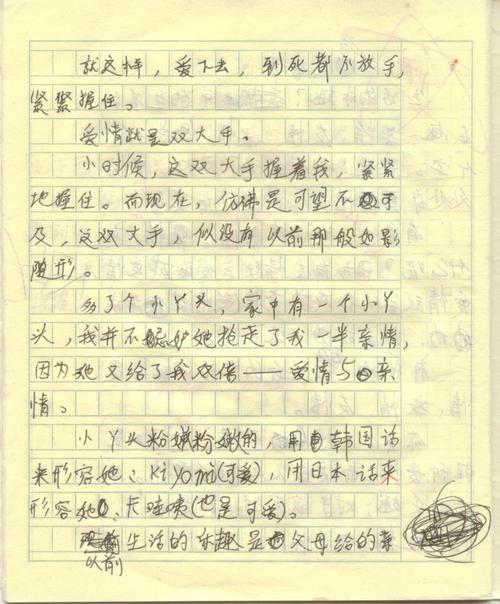 就这样，爱下去，到死都不放手，
紧紧握住。
爱情就是双大手。
小时候，这双大手握着我，紧紧
地握住。而现在，仿佛是可望不可
及，这双大手，似没有以前那般如影
随形。
多了个小丫头，家中有一个小丫
头，我并不嫉妒她抢走了我一半亲情，
因为她又给了我双倍——爱情与亲
情。
小丫头粉嫩粉嫩的，用韩国话
来形容她：kiyomi(可爱)，用日本话来
形容她：卡哇侇(也是可爱)。
生活的乐趣是父母给的亲
以前